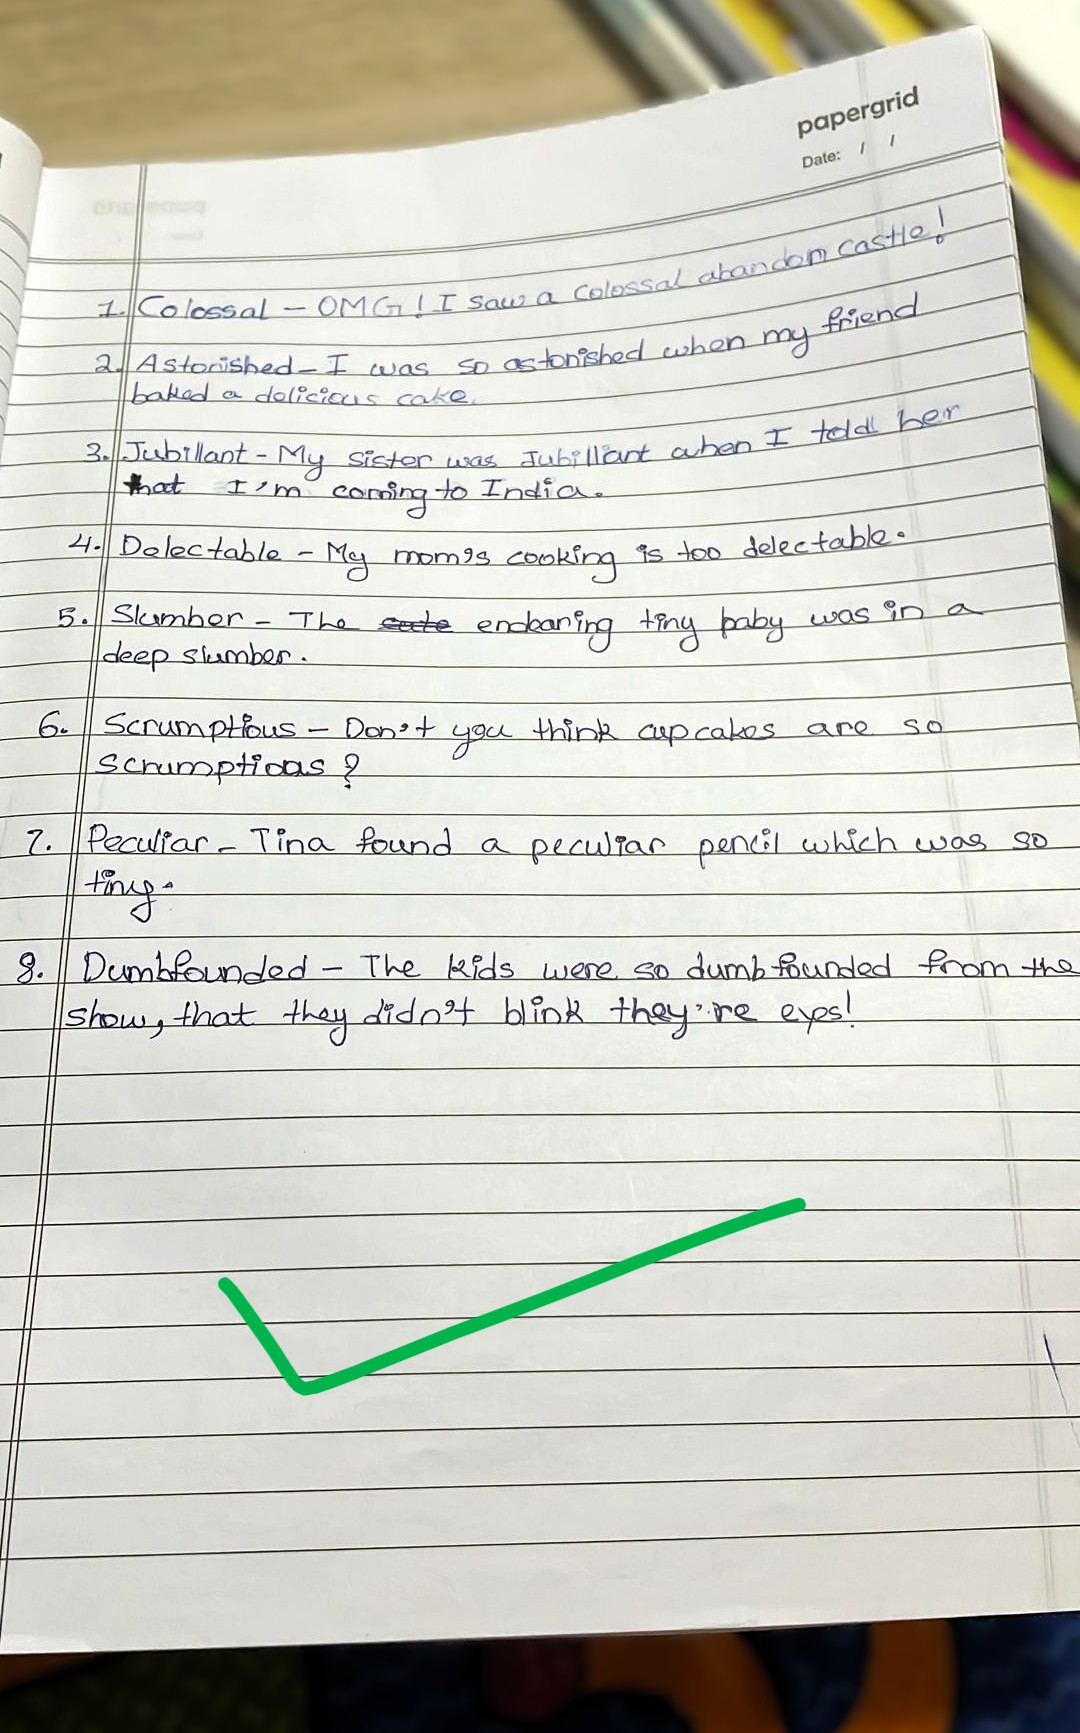 papergrid
Date: / /
1. Colossal - OMG! I saw a colossal abandon castle!
2. Astonished - I was so astonished when my friend
baked a delicious cake.
3. Jubillant - My sister was Jubillant when I told her
that I'm coming to India.
4. Delectable - My mom's cooking is too delectable.
5. Slumber - The cute enckaring tiny baby was in a
deep slumber.
6. Scrumptious - Don't you think cupcakes are so
scrumptious?
7. Peculiar - Tina found a peculiar pencil which was so
tiny.
8. Dumbfounded - The kids were so dumbfounded from the
show, that they didn't blink they're eyes!